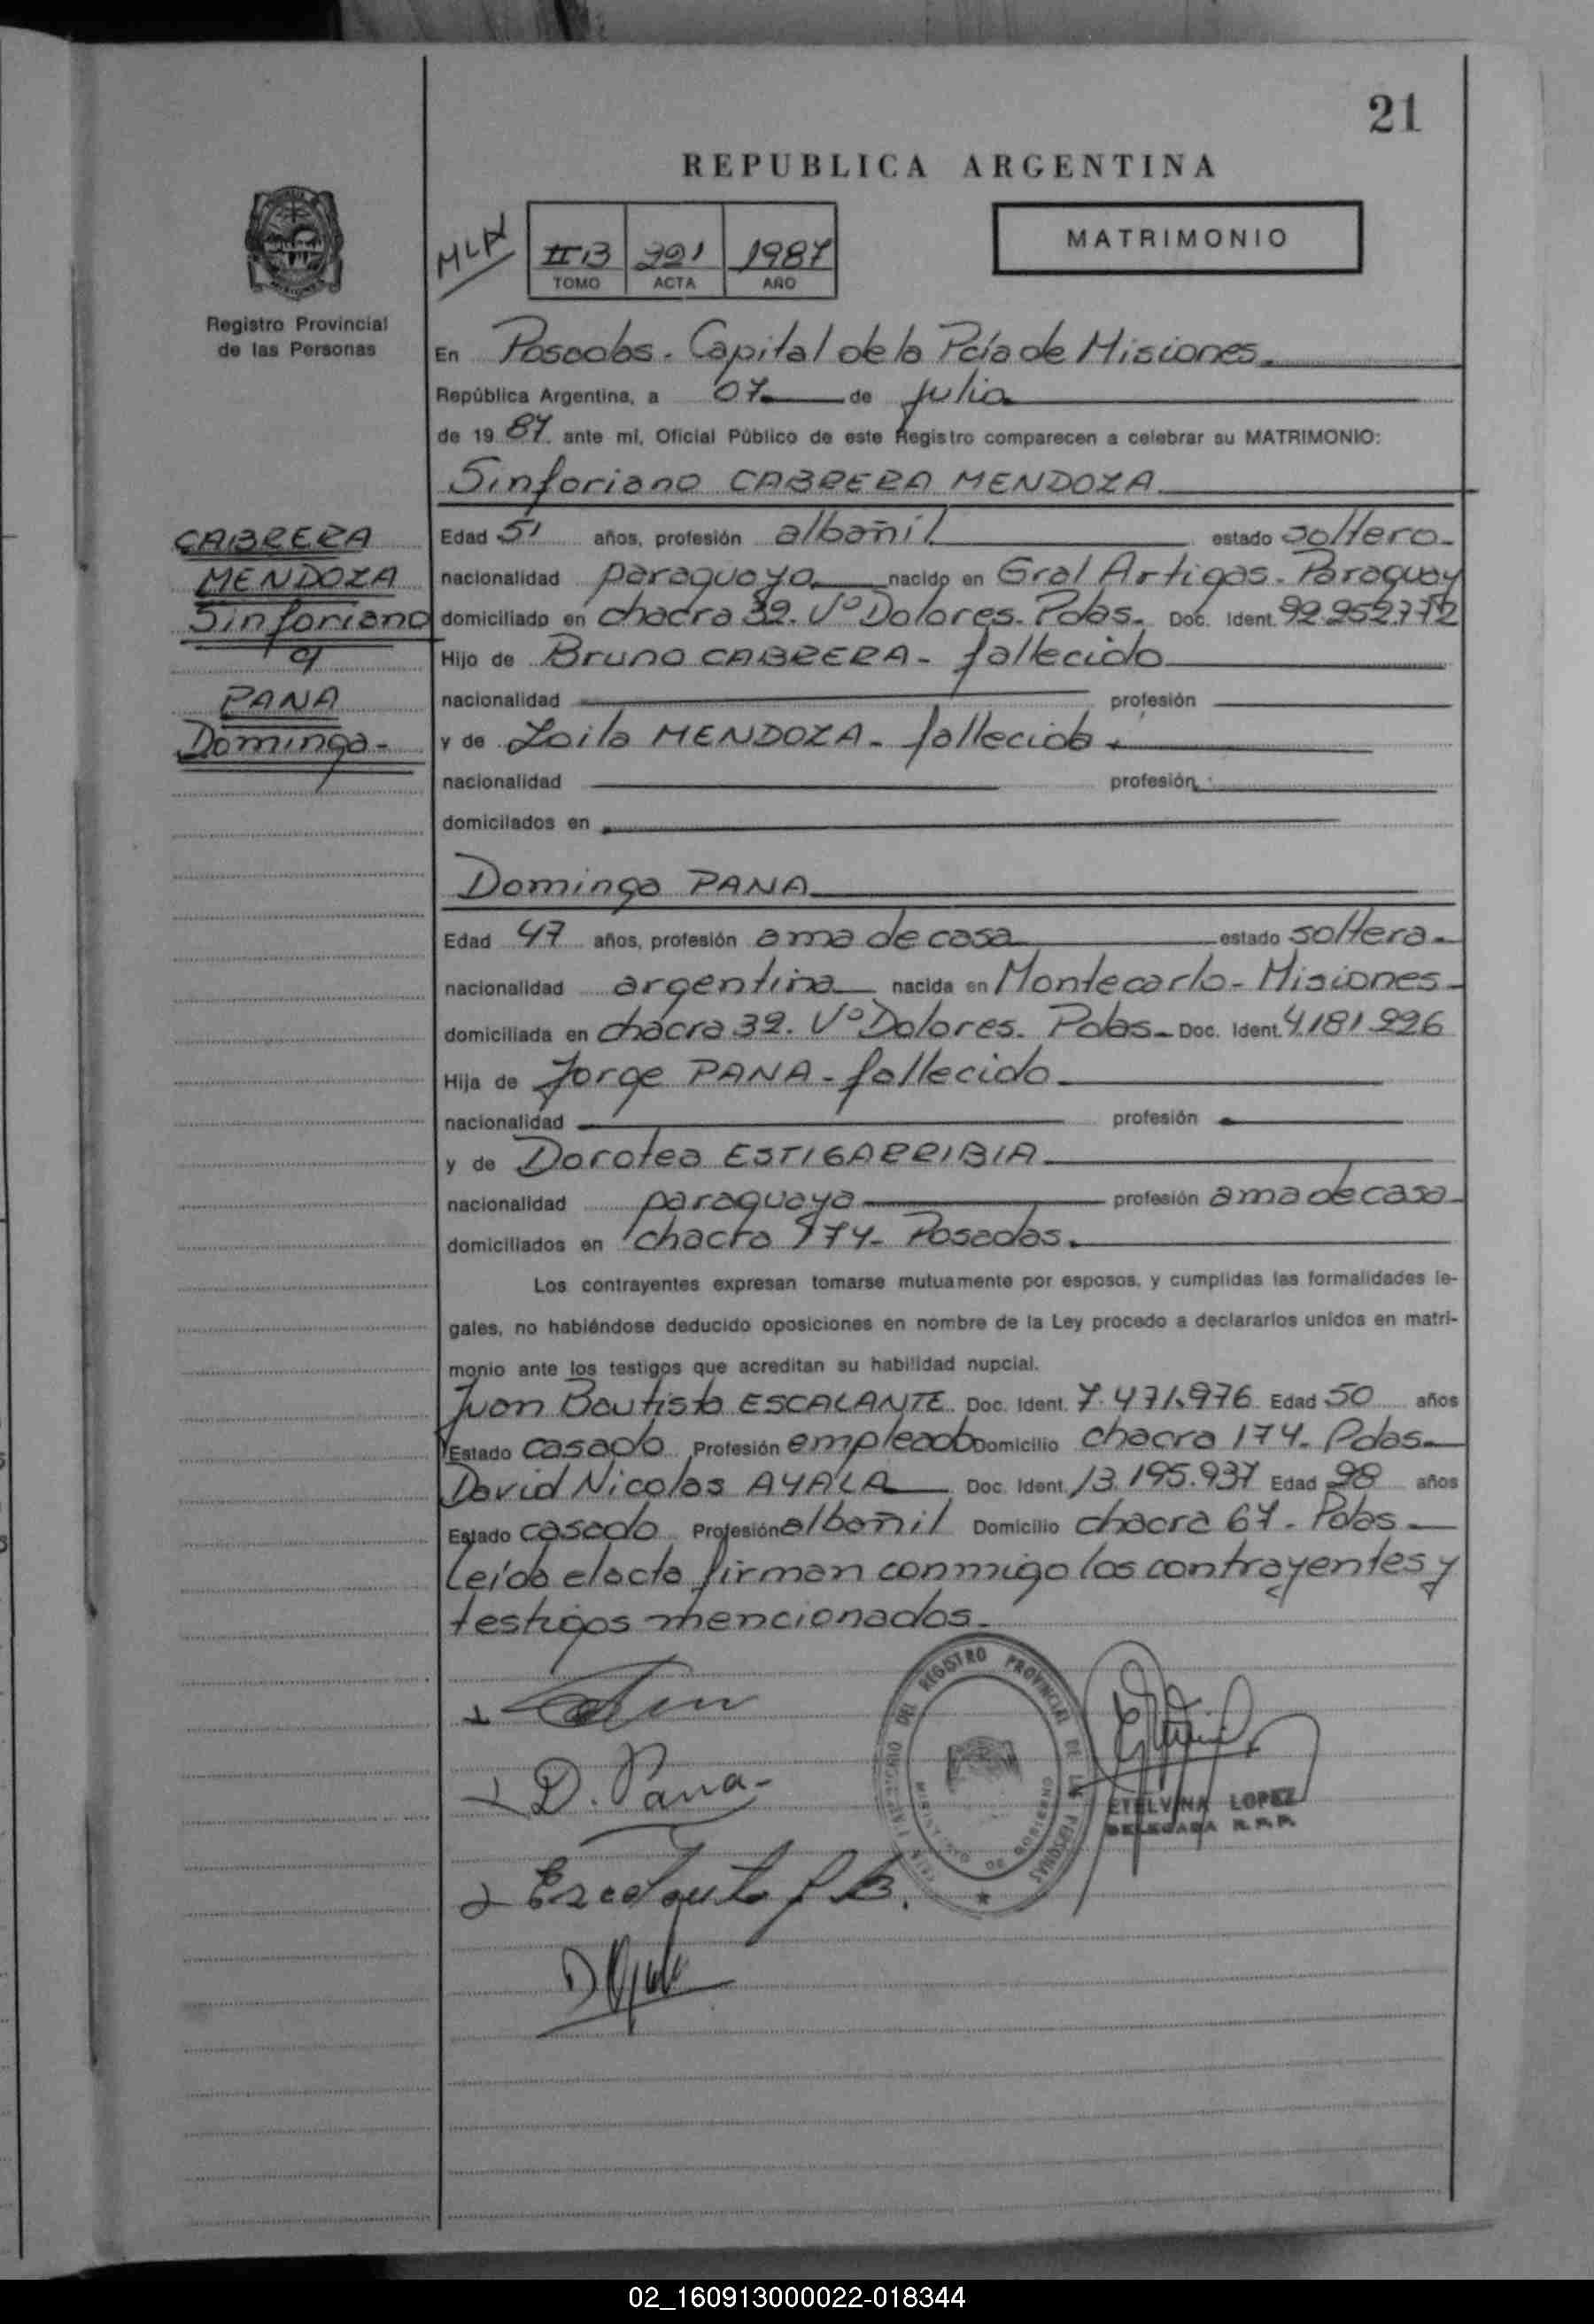 21
REPUBLICA ARGENTINA
MLA
II B 221 1987
TOMO ACTA AÑO
MATRIMONIO
Registro Provincial
de las Personas
En Posadas - Capital de la Pcia de Misiones.
República Argentina, a 07 de julio
de 19 87 ante mí, Oficial Público de este Registro comparecen a celebrar su MATRIMONIO:
Sinforiano CABRERA MENDOZA
CABRERA
MENDOZA
Sinforiano
PANA
Dominga-
Edad 51 años, profesión albañil estado soltero-
nacionalidad paraguaya nacido en Gral Artigas - Paraguay
domiciliado en chacra 32. Vº Dolores. Pdas. Doc. Ident. 92.252.772
Hijo de Bruno CABRERA - fallecido
nacionalidad profesión
y de Zoila MENDOZA - fallecida.
nacionalidad profesión
domicilados en
Dominga PANA
Edad 47 años, profesión ama de casa estado soltera-
nacionalidad argentina nacida en Montecarlo - Misiones-
domiciliada en chacra 32. Vº Dolores. Pdas- Doc. Ident. 4.181.226
Hija de Jorge PANA - fallecido
nacionalidad profesión
y de Dorotea ESTIGARRIBIA
nacionalidad paraguaya profesión ama de casa-
domiciliados en chacra 174- Posadas.
Los contrayentes expresan tomarse mutuamente por esposos, y cumplidas las formalidades le-
gales, no habiéndose deducido oposiciones en nombre de la Ley procedo a declararlos unidos en matri-
monio ante los testigos que acreditan su habilidad nupcial.
Juan Bautista ESCALANTE Doc. Ident. 7.471.976 Edad 50 años
Estado casado Profesión empleado Domicilio chacra 174- Pdas-
David Nicolas AYALA Doc. Ident. 13.195.937 Edad 28 años
Estado casado Profesión albañil Domicilio chacra 67- Pdas-
Leída el acta firman conmigo los contrayentes y
testigos mencionados-
D. Pana-
REGISTRO PROVINCIAL DE LAS PERSONAS
ETELVINA LOPEZ
DELEGADA R.P.P.
02_160913000022-018344